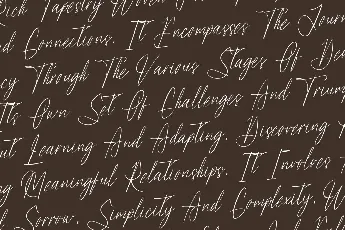 Rich Tapestry Woven
Connections. It Encompasses The Journ
Through The Various Stages Of De
Its Own Set Of Challenges And Trium
Learning And Adapting. Discovering
Meaningful Relationships. It Involves
Sorrow. Simplicity And Complexity. W